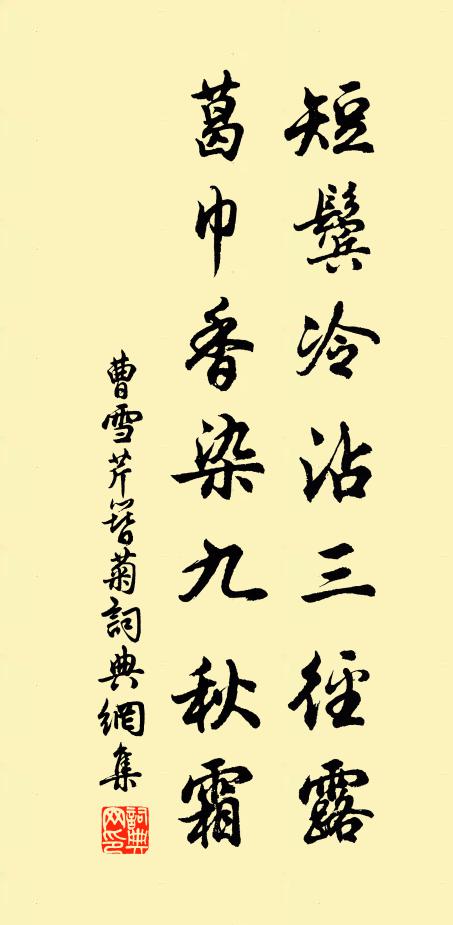 短鬢冷沾三徑露
葛巾香染九秋霜
曹雪芹簪菊詞典網集
詞典網印